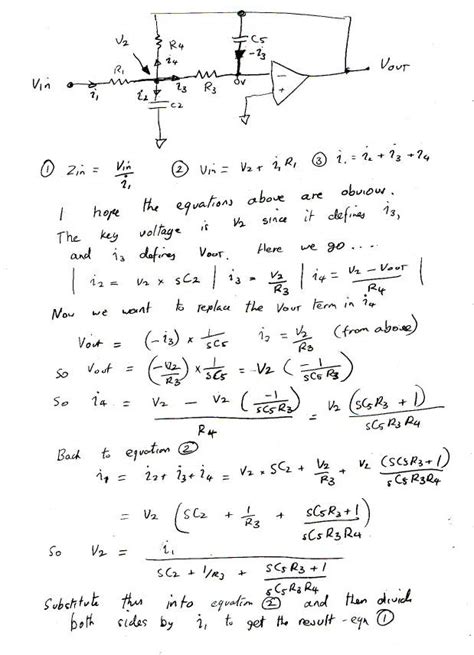 C5
V2
R4
-i3
i4
Vin
R1
R3
Vout
i1
i2
i3
0V
C2
① Zin = Vin / i1   ② Vin = V2 + i1 R1   ③ i1 = i2 + i3 + i4
I hope the equations above are obvious.
The key voltage is V2 since it defines i3,
and i3 defines Vout. Here we go ....
| i2 = V2 × sC2 | i3 = V2 / R3 | i4 = V2 - Vout / R4 |
Now we want to replace the Vout term in i4
Vout = (-i3) × 1 / sC5   i3 = V2 / R3 (from above)
So Vout = (-V2 / R3) × 1 / sC5 = V2 (-1 / sC5R3)
So i4 = V2 - V2 (-1 / sC5R3) / R4 = V2 (sC5R3 + 1) / sC5R3R4
Back to equation ②
i1 = i2 + i3 + i4 = V2 × sC2 + V2 / R3 + V2 (sC5R3 + 1) / sC5R3R4
= V2 (sC2 + 1 / R3 + sC5R3 + 1 / sC5R3R4)
So V2 = i1 / sC2 + 1/R3 + sC5R3 + 1 / sC5R3R4
Substitute this into equation ② and then divide
both sides by i1 to get the result - eqn ①